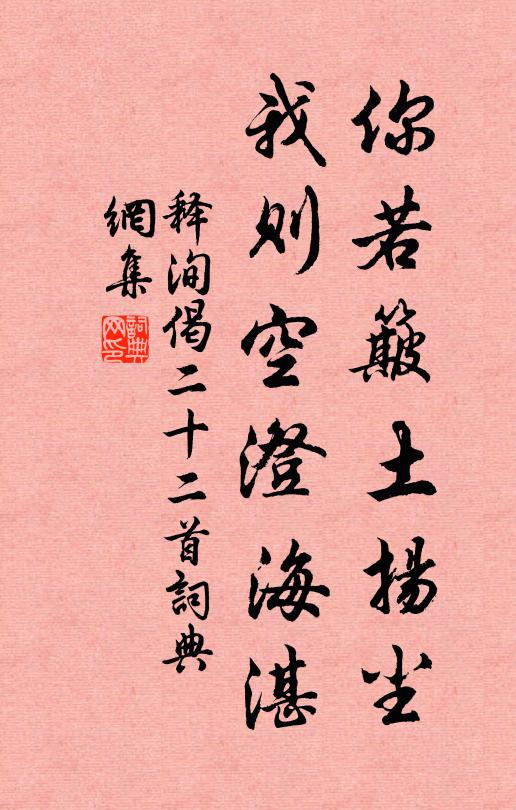 你若簸土揚尘
我則空澄海湛
释洵偈二十二首詞典
網集
詞典网印